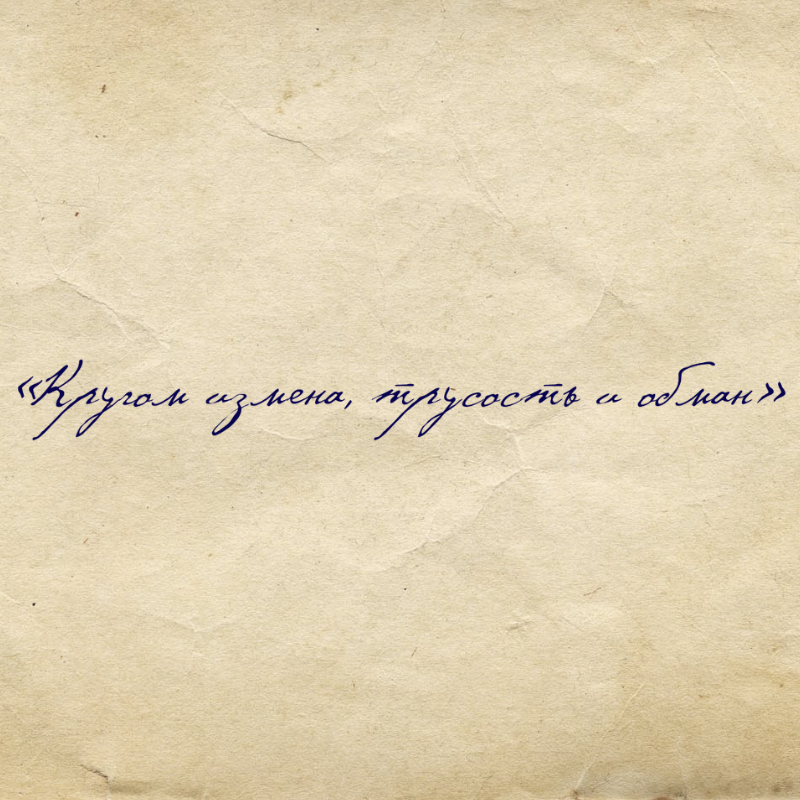 «Кругом измена, трусость и обман»